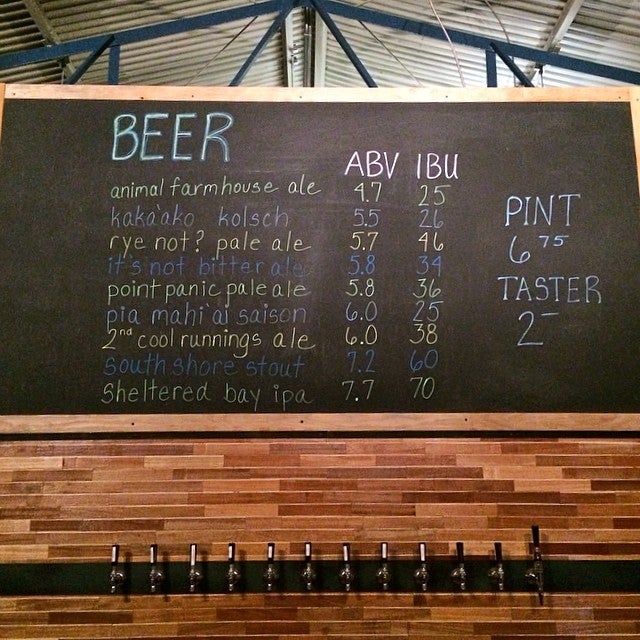 BEER
ABV IBU
animal farmhouse ale 4.7 25
kaka'ako kolsch 5.5 26
rye not? pale ale 5.7 46
it's not bitter ale 5.8 34
point panic pale ale 5.8 36
pia mahi'ai saison 6.0 25
2nd cool runnings ale 6.0 38
south shore stout 7.2 60
Sheltered bay ipa 7.7 70
PINT
6 75
TASTER
2 –